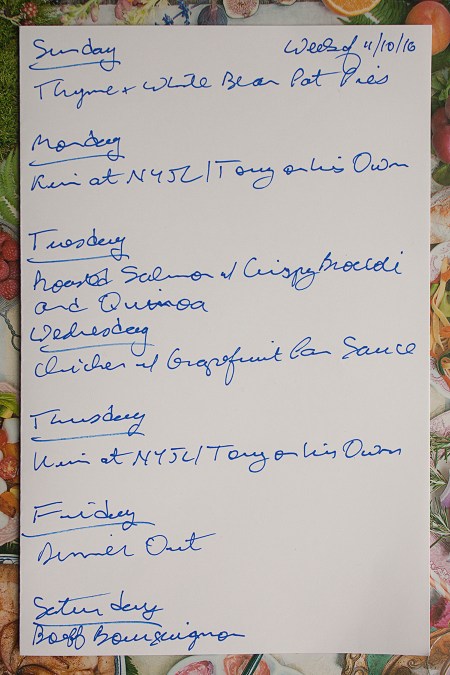 Sunday Week of 4/10/16
Thyme + White Bean Pot Pies
Monday
Kim at NYJL/Tony on his Own
Tuesday
Roasted Salmon w/ Crispy Broccoli
and Quinoa
Wednesday
Chicken w/ Grapefruit Pan Sauce
Thursday
Kim at NYJL/Tony on his Own
Friday
Dinner Out
Saturday
Boeff Bourguignon